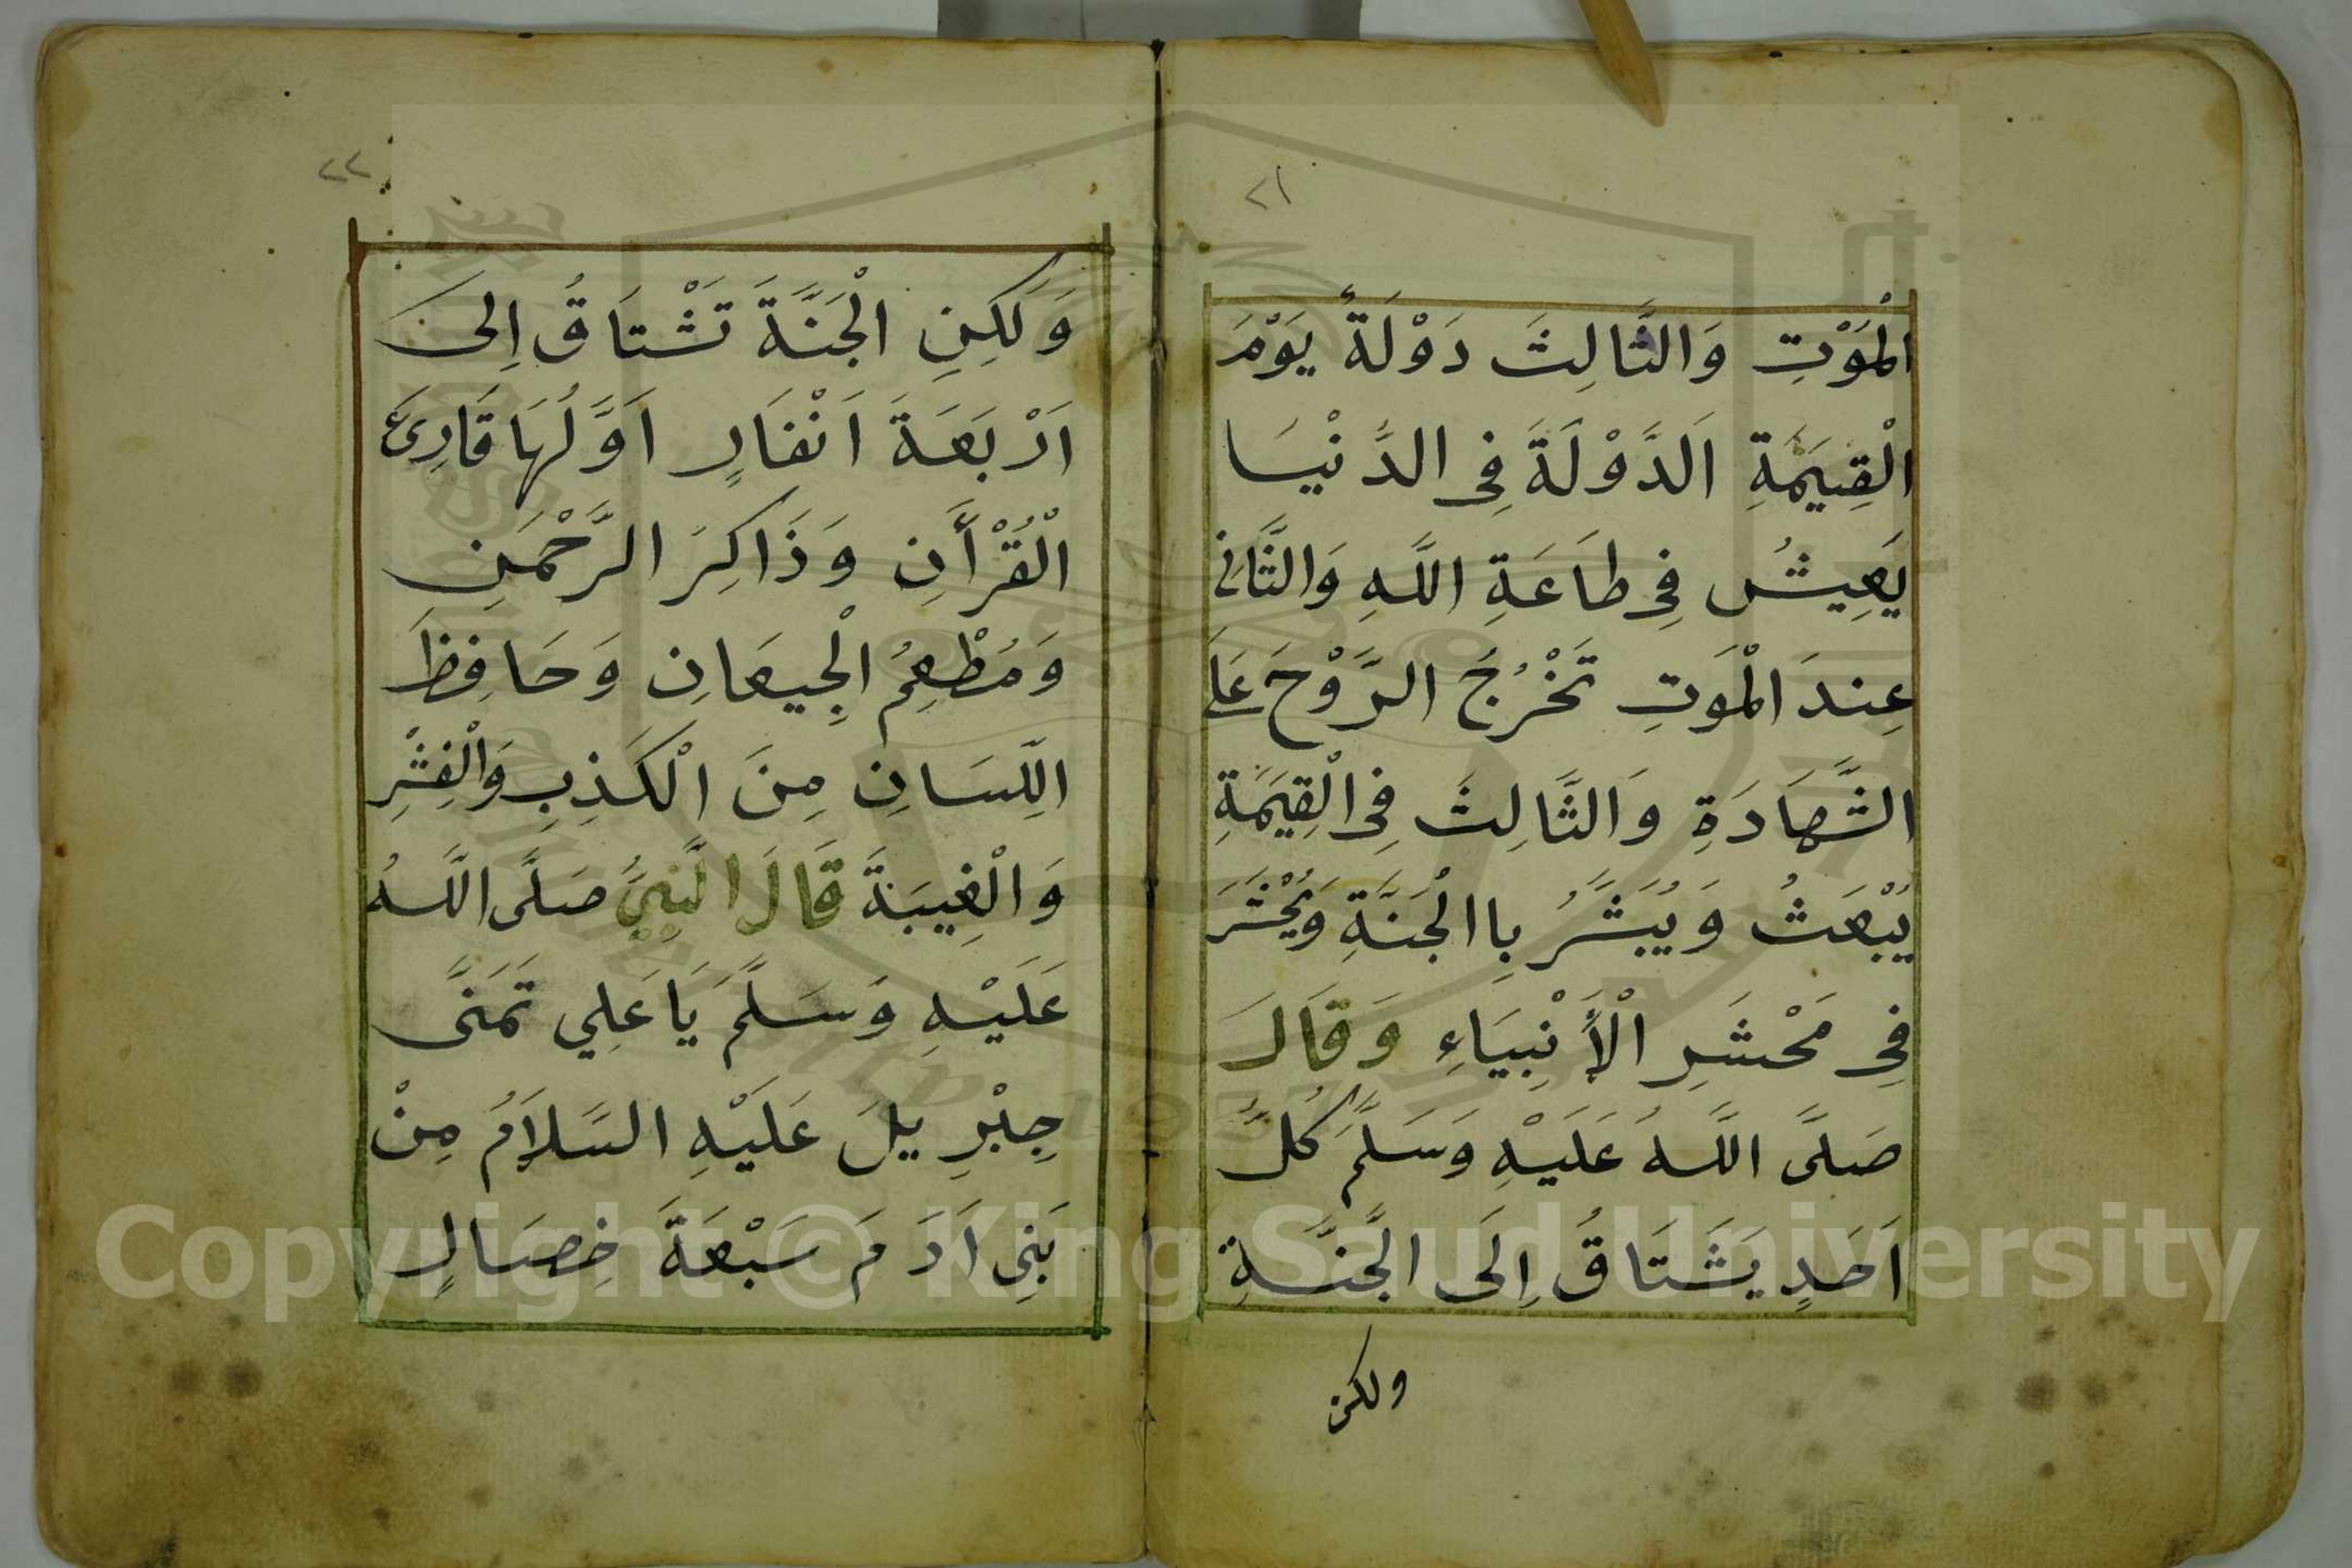 ٢١
الْمَوْتِ وَالثَّالِثَ دَوْلَةٌ يَوْمَ
الْقِيَمَةِ اَلدَّوْلَةَ فِي الدُّنْيَا
يَعِيشُ فِي طَاعَةِ اللَّهِ وَالثَّانِي
عِندَ الْمَوَتِ تَخْرُجُ الرَّوْحَ عَلَى
الشَّهَادَةِ وَالثَّالِثَ فِي الْقِيَمَةِ
يُبْعَثُ وَيُبَشَّرُ بِاالْجَنَّةِ وَيُحْشَرَ
فِي مَحْشَرِ الْأَنْبِيَاءِ وَقَالَ
صَلَّى اللَّهُ عَلَيْهِ وَسَلَّمَ كُلُّ
اَحَدٍ يَشَتَاقُ اِلَى الْجَنَّةِ
ولكن
٢٢
وَلَكِنِ الْجَنَّةَ تَشْتَاقُ اِلىَ
اَرْبَعَةَ اَنْفَارٍ اَوَّلُهَا قَارِئَ
الْقُرْأَنِ وَذَاكِرَ الرَّحْمَنِ
وَمُطْعِمُ الْجِيعَانِ وَحَافِظَ
اللِّسَانِ مِنَ الْكَذِبِ وَالْفِشْرِ
وَالْغِيبَةَ قَالَ النَّبِيُّ صَلَّى اللَّهُ
عَلَيْهِ وَسَلَّمَ يَا عَلِي تَمَنَّى
جِبْرِيلَ عَلَيْهِ السَّلاَمُ مِنْ
بَنِي اَدَمَ سَبْعَةَ خِصَالٍ
Copyright © King Saud University